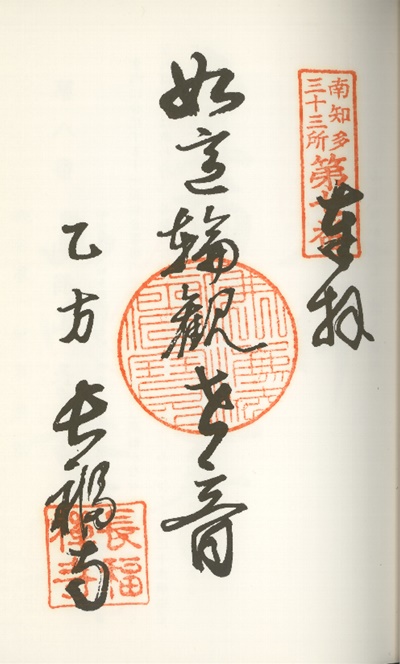 南知多
三十三所
奉拝
如意輪観世音
乙方 長福寺
長福
禪寺